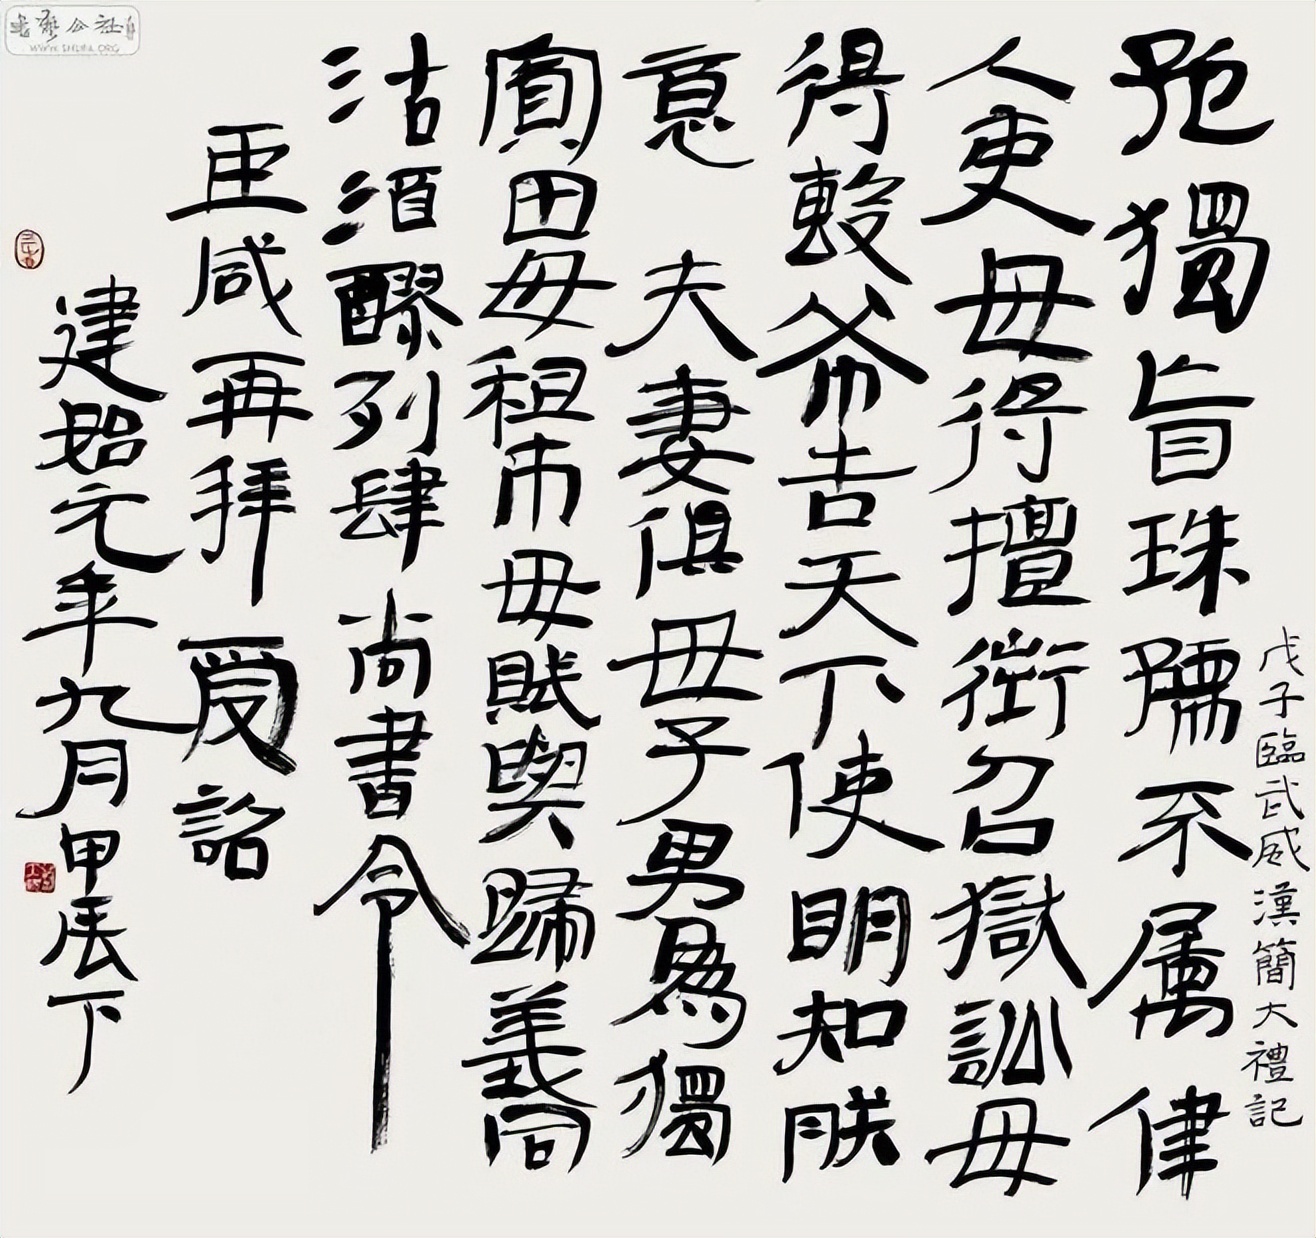 書藝公社
WWW.SHUFA.ORG
戊子臨武威漢簡大禮記
孤獨盲珠孺不属律
人吏毋得擅徵召獄訟毋
得毄布告天下使明知朕
意 夫妻俱毋子男爲獨
寡田毋租市毋賦與歸義同
沽酒醪列肆尚書令
臣咸再拜受詔
建始元年九月甲辰下